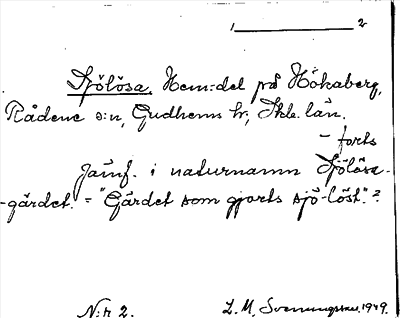 1 2
Sjölösa. Hem:del på Hökaberg,
Rådene s:n, Gudhems hr, Skbr. län.
- forts
Jämf. i naturnamn Sjölösa-
-gärdet. = "Gärdet som gjorts sjö-löst". ?
N:r 2. L. M. Svenungsson. 1949.